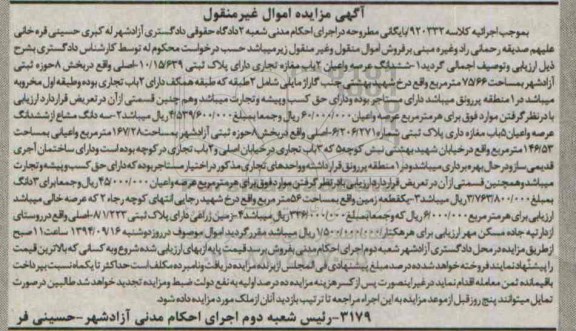 آگهی مزایده اموال غیرمنقول
بموجب اجرائیه کلاسه ۹۲۰۳۳۲/بایگانی مطروحه در اجرای احکام مدنی شعبه ۲ دادگاه حقوقی دادگستری آزادشهر له کبری حسینی قره خانی
علیهم صدیقه رحمانی راد وغیره مبنی بر فروش اموال منقول وغیر منقول زیر میباشد حسب درخواست محکوم له توسط کارشناس دادگستری بشرح
ذیل ارزیابی و توصیف اجمالی گردید ۱-ششدانگ عرصه واعیان ۲باب مغازه تجاری دارای پلاک ثبتی ۱۰/۱۵/۶۳۹-اصلی واقع در بخش ۸حوزه ثبتی
آزادشهر بمساحت ۷۵/۶۶ متر مربع واقع درخ شهید بهشتی جنب گاراژ مایلی شامل ۲طبقه که طبقه همکف دارای ۲باب تجاری بوده وطبقه اول مخروبه
میباشد در ۱ منطقه پررونق میباشد دارای مستاجر بوده ودارای حق کسب وپیشه وتجارت میباشد وهم چنین قسمتی از آن در تعریض قرار دارد ارزیابی
با در نظر گرفتن موارد فوق برای هر متر مربع عرصه واعیان ۶۰/۰۰۰/۰۰۰ ریال وجمعا بمبلغ ۴/۵۳۹/۶۰۰/۰۰۰ ریال میباشد ۲-سه دانگ مشاع از ششدانگ
عرصه واعیان ۵باب مغازه داری پلاک ثبتی شماره ۶۲۷۱-۶۲۰۶-اصلی واقع در بخش ۸حوزه ثبتی آزادشهر بمساحت ۱۶۷/۲۸ متر مربع واعیانی بمساحت
۱۴۶/۵۳ متر مربع واقع در خیابان شهید بهشتی نبش کوچه ۵ که ۳باب تجاری در خیابان اصلی و ۲باب تجاری در کوچه بوده است ودارای ساختمان آجری
قدیمی ساز ودر حال بهره برداری میباشد ودر ۱ منطقه پررونق قرار داشته وواحدهای تجاری مذکور در اختیار مستاجر بوده که دارای حق کسب وپیشه وتجارت
میباشد وهمچنین قسمتی از آن در تعریض قرار دارد ارزیابی بادر نظر گرفتن موارد فوق برای هر متر مربع عرصه واعیان ۴۵/۰۰۰/۰۰۰ ریال وجمعا برای ۳دانگ
بمبلغ ۳/۷۶۳/۸۰۰/۰۰۰ ریال میباشد ۳-یکقطعه زمین واقع بمساحت ۵۶ متر مربع واقع درخ شهید رجایی انتهای کوچه رجاء ۲ که عرصه خالی میباشد
ارزیابی برای هر متر مربع ۶/۰۰۰/۰۰۰ ریال که وجمعا بمبلغ ۳۳۶/۰۰۰/۰۰۰ ریال میباشد ۴-زمین زراعی دارای پلاک ثبتی ۸۱/۲۲۳-اصلی واقع در روستای
ازدار تپه جاده مسکن مهر ارزیابی برای هر هکتار ۱/۵۰۰/۰۰۰/۰۰۰ ریال میباشد مقرر گردید اموال موصوف در روز دوشنبه ۱۳۹۴/۰۹/۱۶ ساعت ۱۱ صبح
از طریق مزایده در محل دادگستری آزادشهر شعبه دوم اجرای احکام مدنی بفروش برسد قیمت پایه از بهای ارزیابی شده شروع وبه کسانی که بالاترین قیمت
را پیشنهاد نمایند فروخته خواهد شد ده درصد مبلغ پیشنهادی فی المجلس از برنده مزایده دریافت ونامبرده مکلف است حداکثر تا یکماه نسبت بپرداخت
باقیمانده ثمن معامله اقدام نماید در غیر اینصورت پس از کسر هزینه مزایده ده درصد اولیه به نفع دولت ضبط ومزایده تجدید خواهد شد طالبین در صورت
تمایل میتوانند پنج روز قبل از موعد مزایده به این اجراء مراجعه تا ترتیب بازدید آنان از ملک مورد مزایده داده شود.
۳۱۷۹-رئیس شعبه دوم اجرای احکام مدنی آزادشهر-حسینی فر